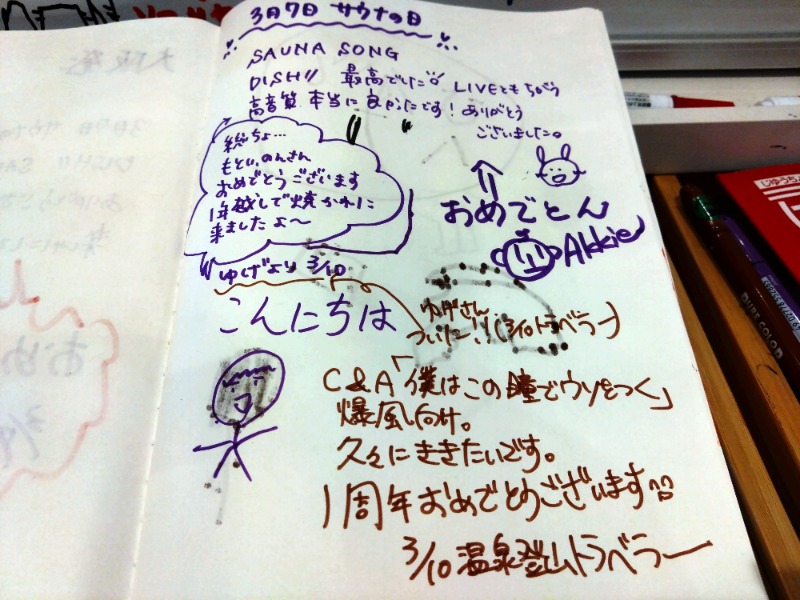 3月7日 サウナの日
SAUNA SONG
DISH// 最高でした LIVEともちがう
高音質 本当に良かったです! ありがとう
ございました。
総ちょ…
もとい、のんさん
おめでとうございます
1年越しで焼かれに
来ましたよ〜
ゆげより 3/10
おめでとん
Akkie
こんにちは
ゆげさん
ついたー!! (3/10トラベラー)
C&A「僕はこの瞳でウソをつく」
爆風向け。
久々にききたいです。
1周年おめでとうございます
3/10 温泉登山トラベラー
PURE COLOR